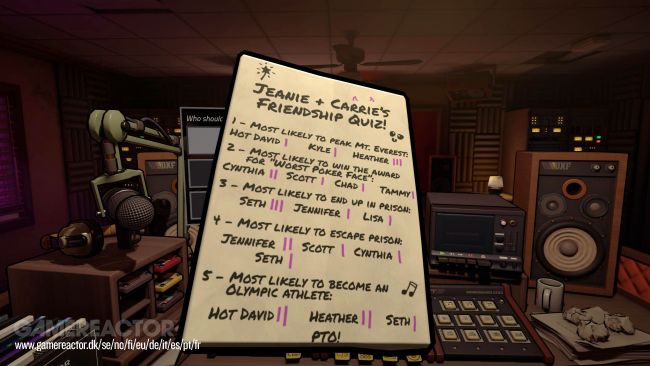 Who should
JEANIE + CARRIE'S
FRIENDSHIP QUIZ!
1 - MOST LIKELY TO PEAK MT. EVEREST:
HOT DAVID | KYLE | HEATHER |||
2 - MOST LIKELY TO WIN THE AWARD
FOR "WORST POKER FACE":
CYNTHIA || SCOTT | CHAD | TAMMY |
3 - MOST LIKELY TO END UP IN PRISON:
SETH ||| JENNIFER | LISA |
4 - MOST LIKELY TO ESCAPE PRISON:
JENNIFER || SCOTT | CYNTHIA |
SETH |
5 - MOST LIKELY TO BECOME AN
OLYMPIC ATHLETE:
HOT DAVID || HEATHER || SETH |
PTO!
GAMEREACTOR
www.gamereactor.dk/se/no/fi/eu/de/it/es/pt/fr